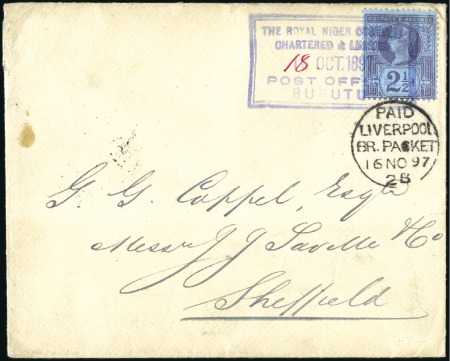 THE ROYAL NIGER
CHARTERED &
18 OCT.189
POST OFF
POSTAGE & REVENUE
2½
PAID
LIVERPOOL
BR. PACKET
16 NO 97
2B
G. G. Coppel, Esqre
Messrs J J Saville & Co
Sheffield